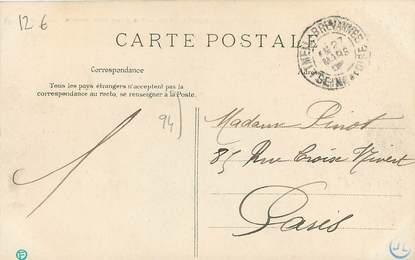 12.6
CARTE POSTALE
Correspondance
Tous les pays étrangers n'acceptent pas la
correspondance au recto, se renseigner à la Poste.
94)
Madame Pinot
85 Rue Croix Nivert
Paris
JL